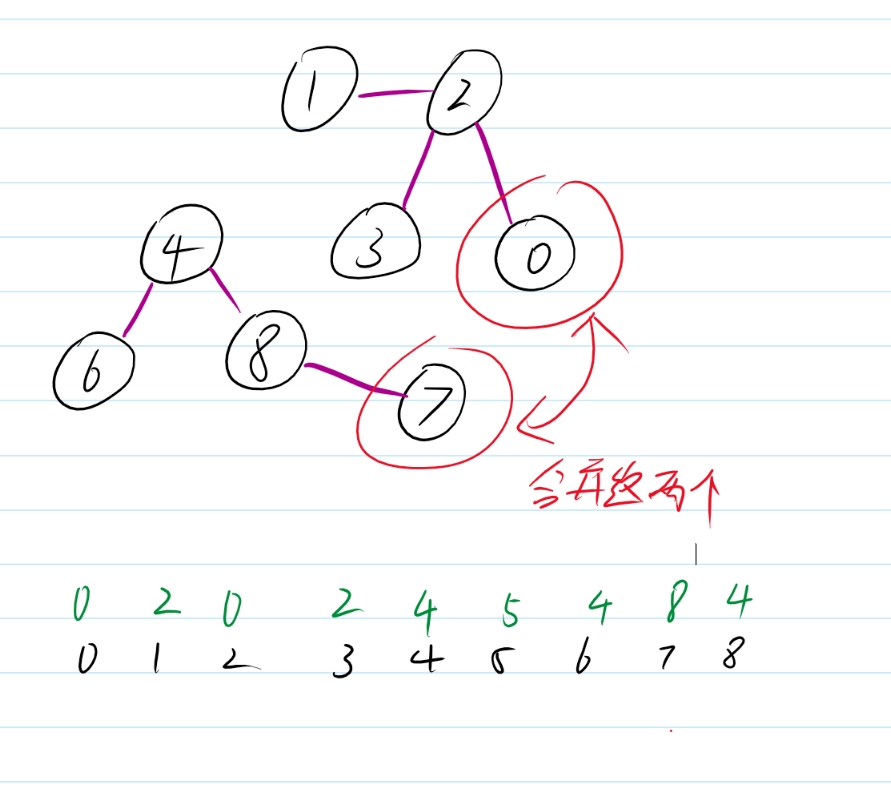 1 2
4 3 0
6 8 7
合并这两个
0 2 0 2 4 5 4 8 4
0 1 2 3 4 5 6 7 8